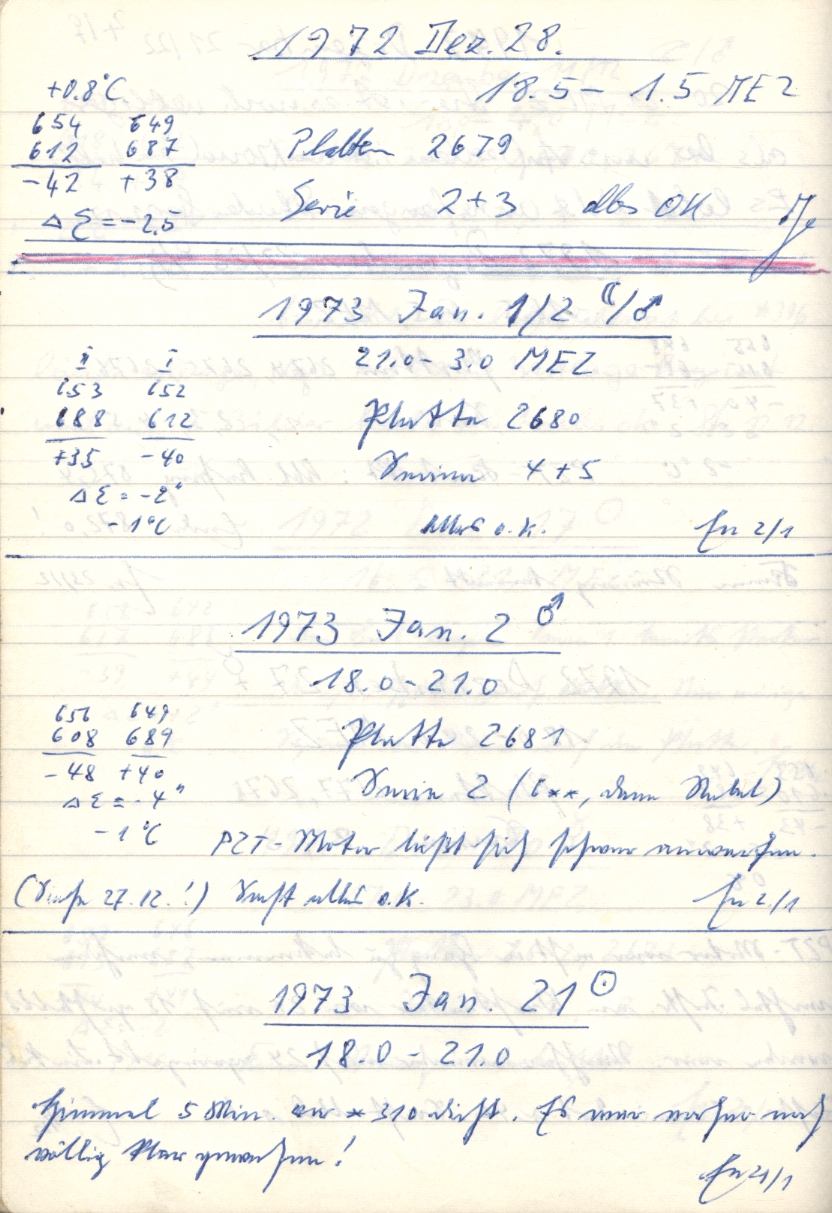 1972 Dez. 28.
18.5 - 1.5 MEZ
+0.8°C
654 649
612 687
-42 +38
Δξ = -2.5
Platten 2679
Serie 2+3 alles OK
1973 Jan. 1/2 ☾/♂
21.0 - 3.0 MEZ
II I
653 652
688 612
+35 -40
Δξ = -2"
-1°C
Platte 2680
Serien 4+5
alles o.K. 2/1
1973 Jan. 2 ♂
18.0 - 21.0
656 649
608 689
-48 +40
Δξ = -4"
-1°C
Platte 2681
Serie 2 (6**, dann Nebel)
PZT-Motor läßt sich schwer anwerfen.
(Siehe 27.12.!) Sonst alles o.K. 2/1
1973 Jan. 21 ☉
18.0 - 21.0
Himmel 5 Min. vor *310 dicht. Es war vorher noch
völlig klar gewesen!
21/1